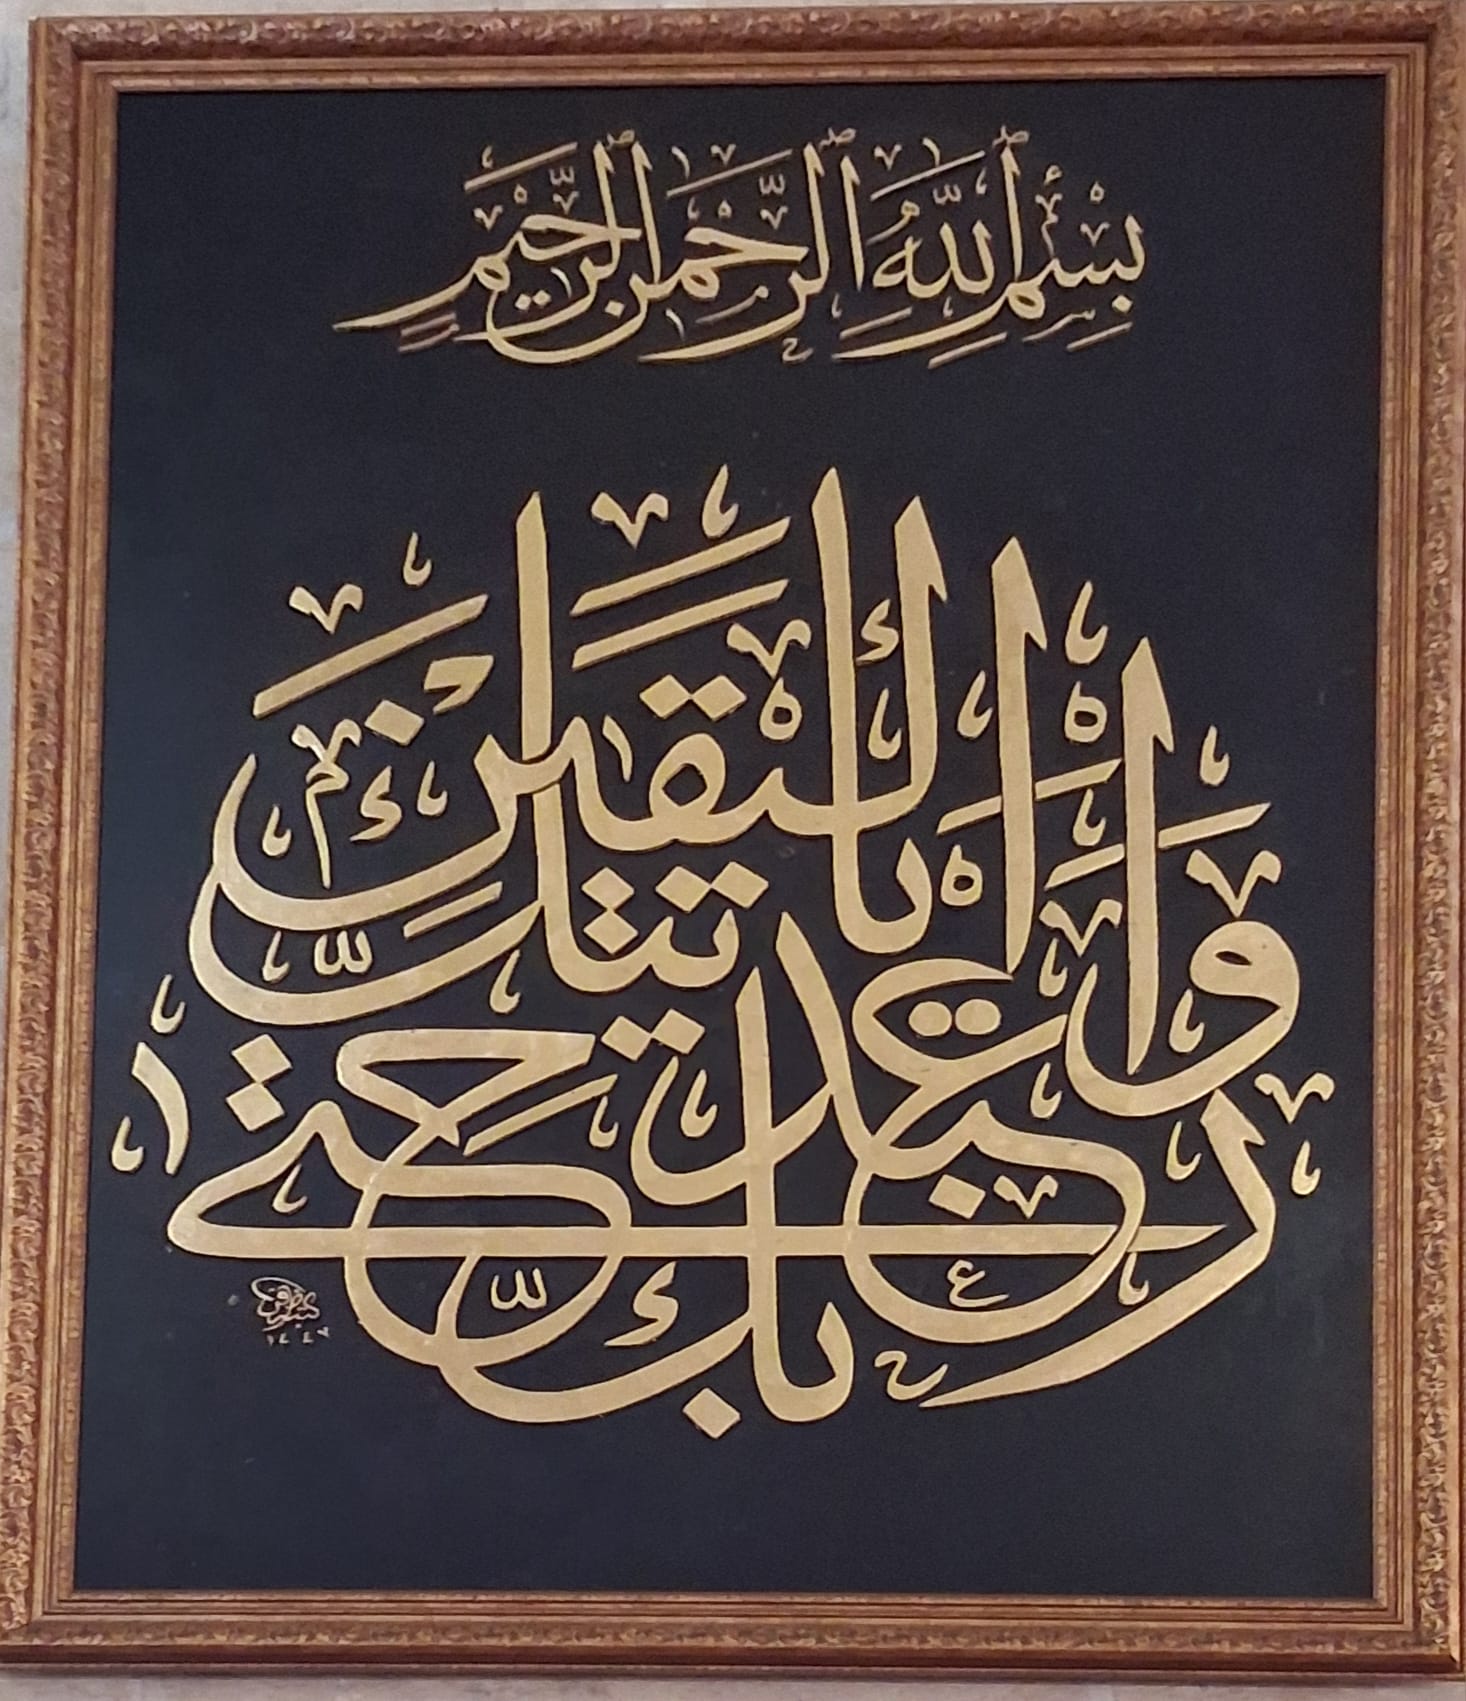 بِسْمِ ٱللَّهِ ٱلرَّحْمَنِ ٱلرَّحِيمِ
وَاعْبُدْ رَبَّكَ حَتَّى يَأْتِيَكَ الْيَقِينُ